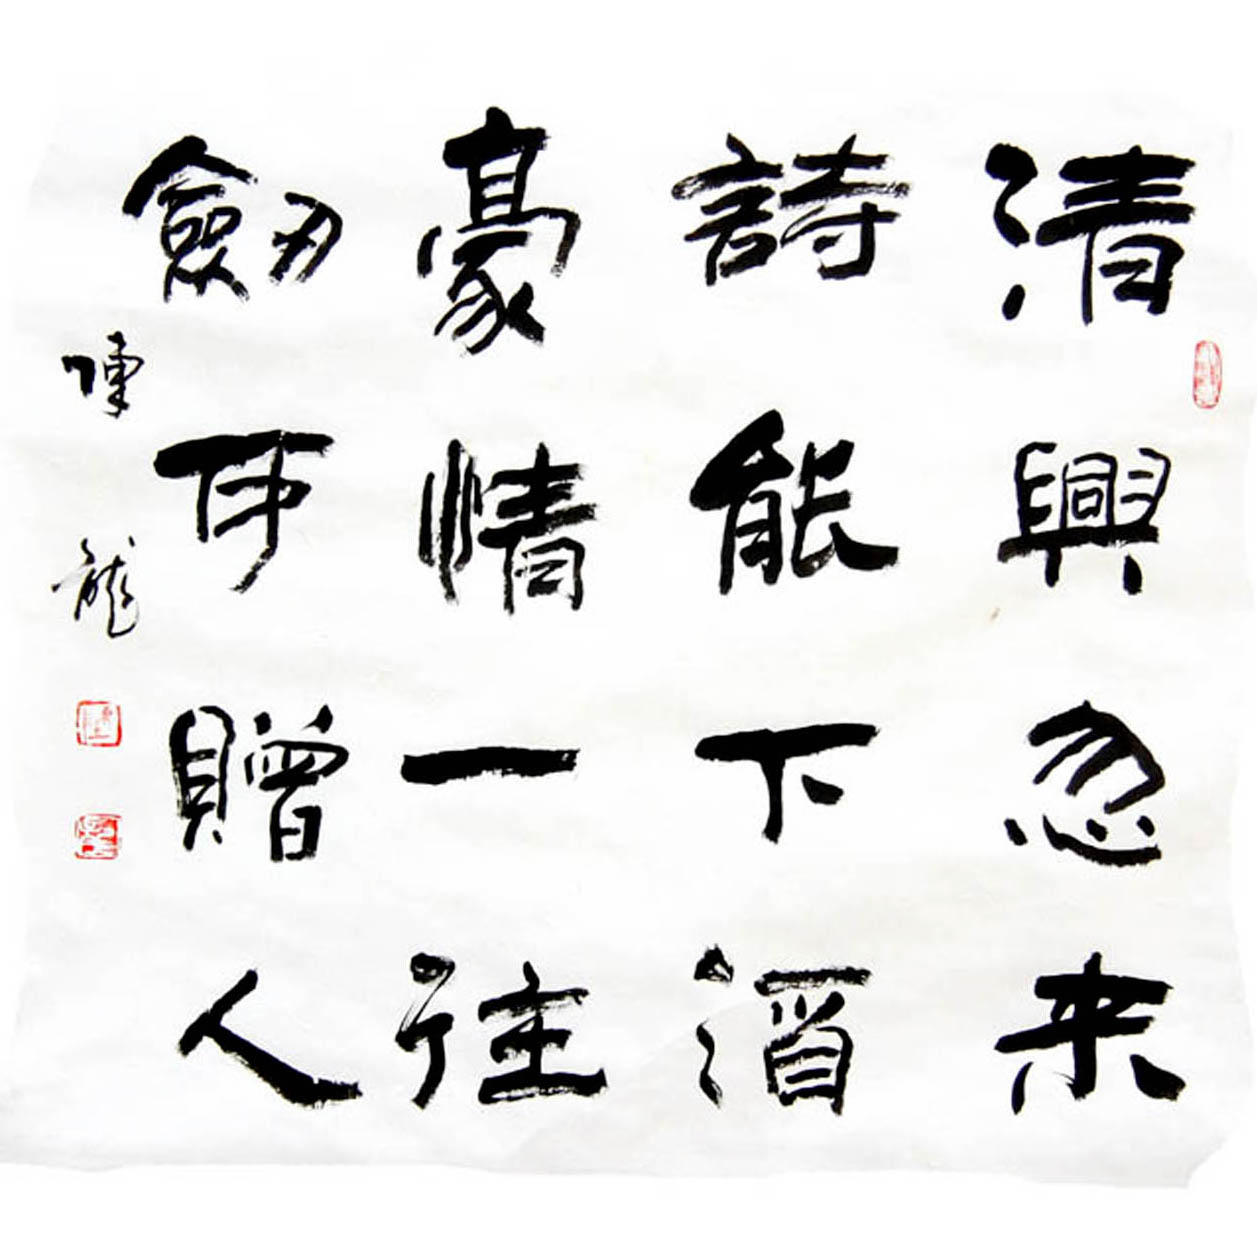 清興忽来
詩能下酒
豪情一往
劔可贈人
陳龍